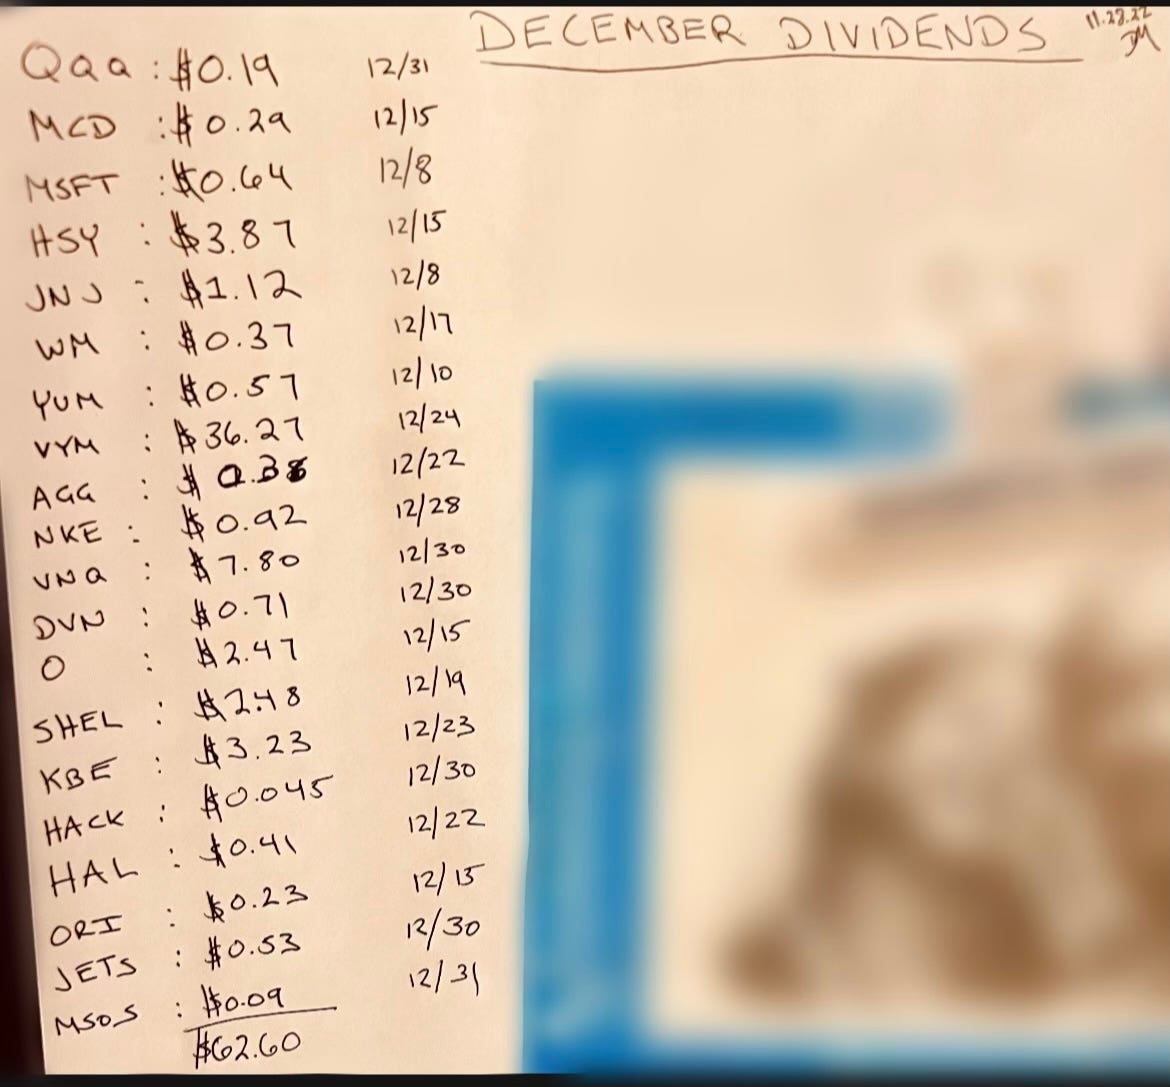 DECEMBER DIVIDENDS 11.28.22
QQQ : $0.19 12/31
MCD : $0.29 12/15
MSFT : $0.64 12/8
HSY : $3.87 12/15
JNJ : $1.12 12/8
WM : $0.37 12/17
YUM : $0.57 12/10
VYM : $36.27 12/24
AGG : $ 12/22
NKE : $0.92 12/28
VNQ : $7.80 12/30
DVN : $0.71 12/30
O : $2.47 12/15
SHEL : $2.48 12/19
KBE : $3.23 12/23
HACK : $0.045 12/30
HAL : $0.41 12/22
ORI : $0.23 12/15
JETS : $0.53 12/30
MSOS : $0.09 12/31
$62.60